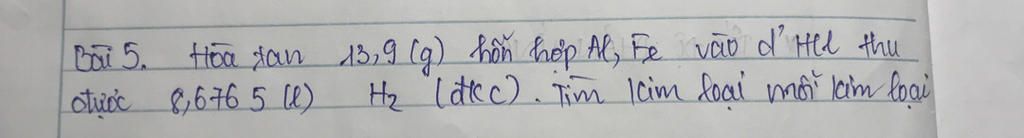 Bài 5. Hòa tan 13,9 (g) hỗn hợp Al, Fe vào d² HCl thu
được 8,6765 (l) H₂ (đkc). Tìm kim loại mỗi kim loại